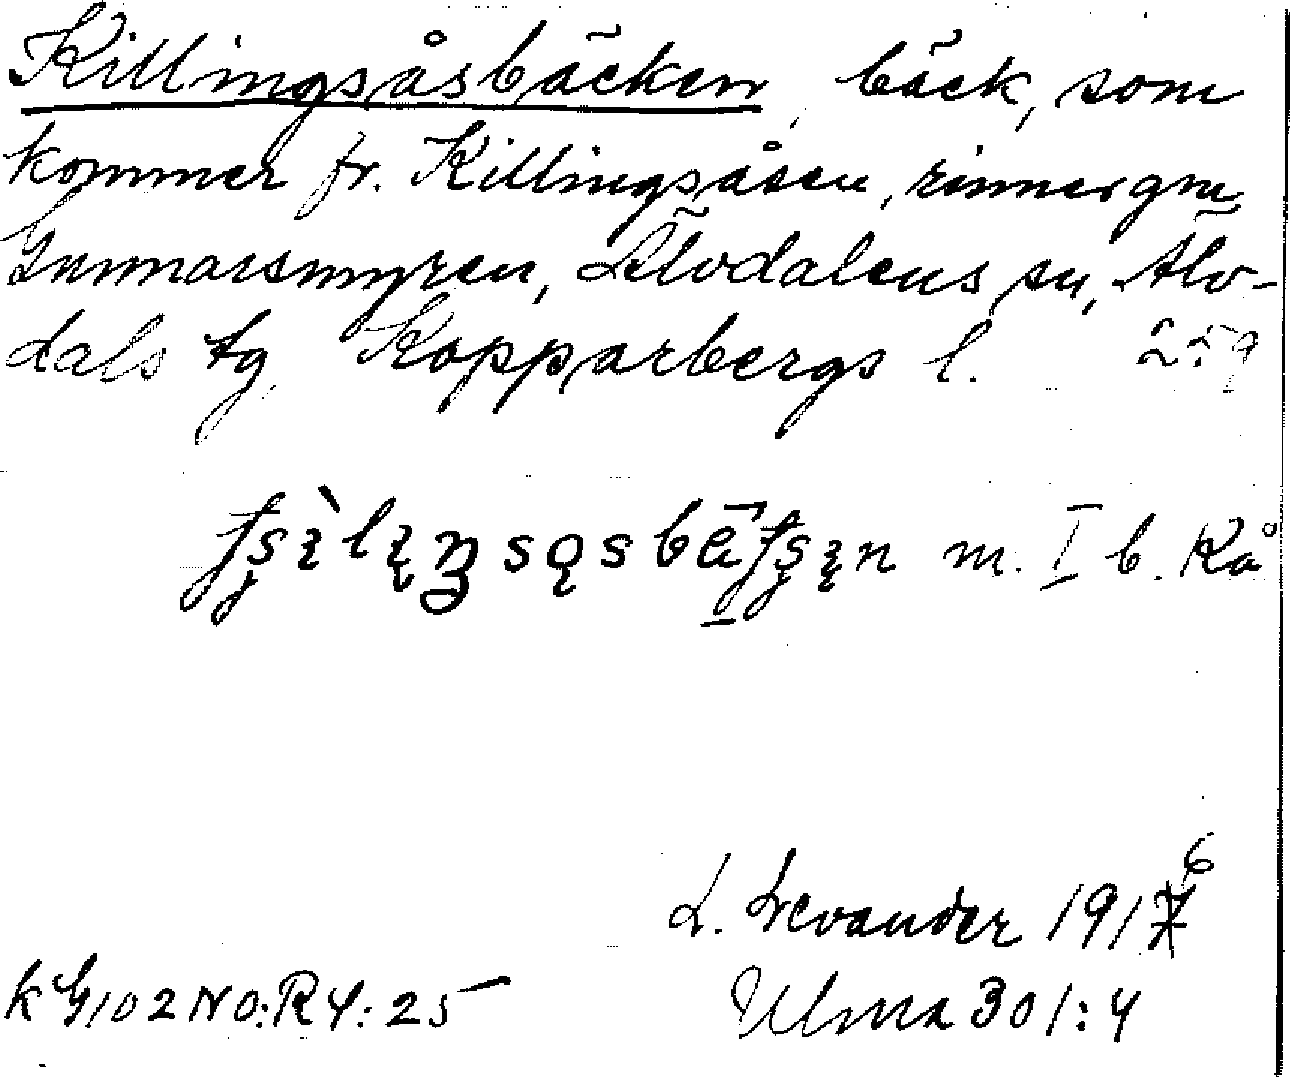 Killingsåsbäcken, bäck, som
kommer fr. Killingsåsen, rinner gm
Gunnarsmyren, Älvdalens sn, Älv-
dals tg, Kopparbergs l. 259
m. I b. Kå
6
L. Levander 1917
kG102NO:R4:25 Ulma 301:4